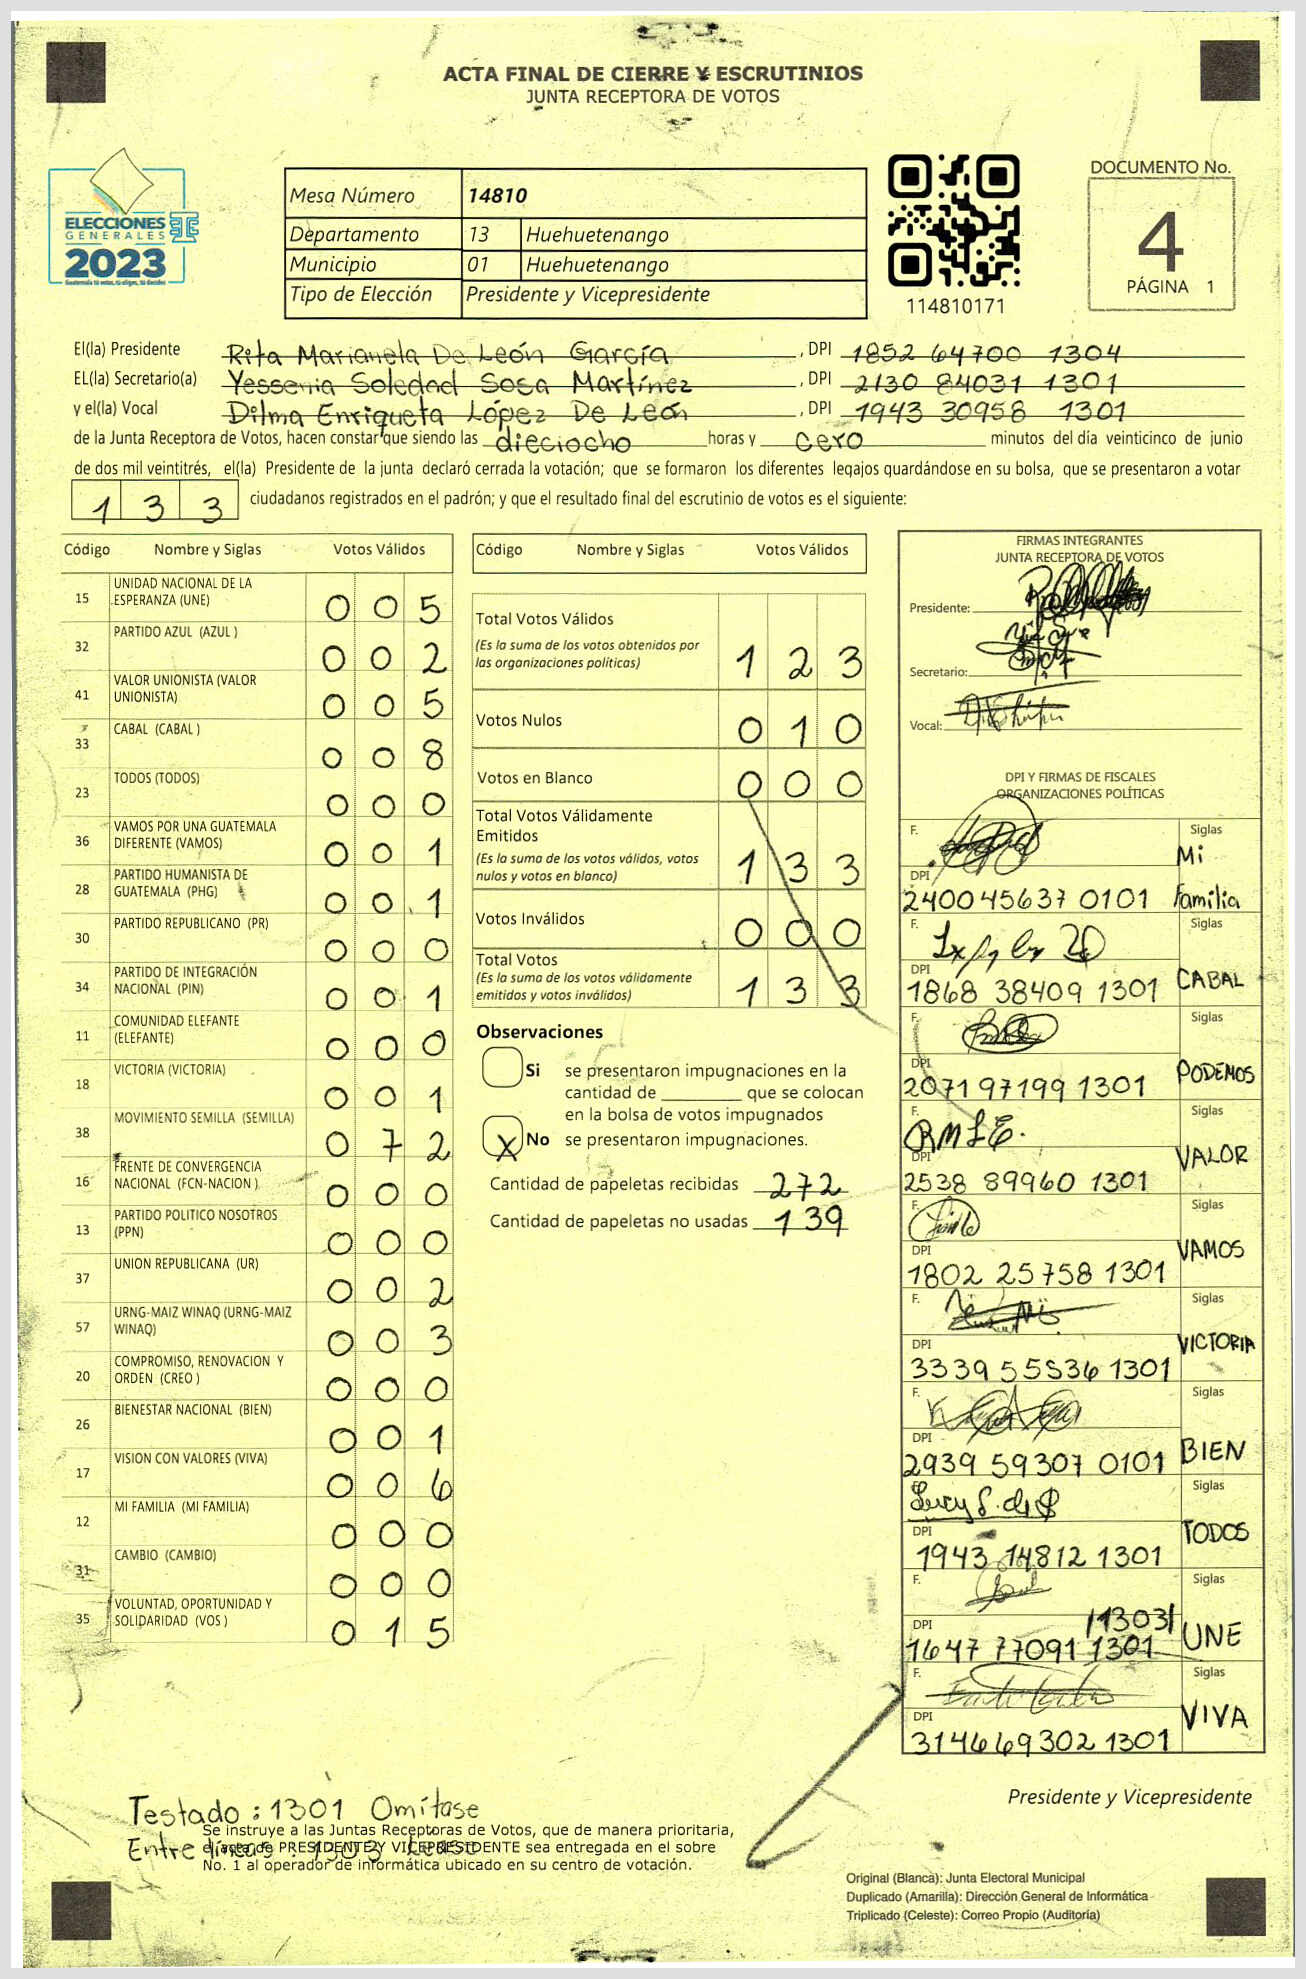 ACTA FINAL DE CIERRE Y ESCRUTINIOS
JUNTA RECEPTORA DE VOTOS
ELECCIONES
GENERALES
2023
Guatemala tú votas, tú eliges, tú decides
Mesa Número 14810
Departamento 13 Huehuetenango
Municipio 01 Huehuetenango
Tipo de Elección Presidente y Vicepresidente
114810171
DOCUMENTO No.
4
PÁGINA 1
El(la) Presidente Rita Marianela De León García, DPI 1852 64700 1304
EL(la) Secretario(a) Yessenia Soledad Sosa Martínez, DPI 2130 84031 1301
y el(la) Vocal Dilma Enriqueta López De León, DPI 1943 30958 1301
de la Junta Receptora de Votos, hacen constar que siendo las dieciocho horas y cero minutos del día veinticinco de junio
de dos mil veintitrés, el(la) Presidente de la junta declaró cerrada la votación; que se formaron los diferentes legajos quardándose en su bolsa, que se presentaron a votar
1 3 3 ciudadanos registrados en el padrón; y que el resultado final del escrutinio de votos es el siguiente:
Código Nombre y Siglas Votos Válidos
15 UNIDAD NACIONAL DE LA ESPERANZA (UNE) 0 0 5
32 PARTIDO AZUL (AZUL ) 0 0 2
41 VALOR UNIONISTA (VALOR UNIONISTA) 0 0 5
33 CABAL (CABAL ) 0 0 8
23 TODOS (TODOS) 0 0 0
36 VAMOS POR UNA GUATEMALA DIFERENTE (VAMOS) 0 0 1
28 PARTIDO HUMANISTA DE GUATEMALA (PHG) 0 0 1
30 PARTIDO REPUBLICANO (PR) 0 0 0
34 PARTIDO DE INTEGRACIÓN NACIONAL (PIN) 0 0 1
11 COMUNIDAD ELEFANTE (ELEFANTE) 0 0 0
18 VICTORIA (VICTORIA) 0 0 1
38 MOVIMIENTO SEMILLA (SEMILLA) 0 7 2
16 FRENTE DE CONVERGENCIA NACIONAL (FCN-NACION ) 0 0 0
13 PARTIDO POLITICO NOSOTROS (PPN) 0 0 0
37 UNION REPUBLICANA (UR) 0 0 2
57 URNG-MAIZ WINAQ (URNG-MAIZ WINAQ) 0 0 3
20 COMPROMISO, RENOVACION Y ORDEN (CREO ) 0 0 0
26 BIENESTAR NACIONAL (BIEN) 0 0 1
17 VISION CON VALORES (VIVA) 0 0 6
12 MI FAMILIA (MI FAMILIA) 0 0 0
31 CAMBIO (CAMBIO) 0 0 0
35 VOLUNTAD, OPORTUNIDAD Y SOLIDARIDAD (VOS ) 0 1 5
Código Nombre y Siglas Votos Válidos
Total Votos Válidos
(Es la suma de los votos obtenidos por
las organizaciones políticas) 1 2 3
Votos Nulos 0 1 0
Votos en Blanco 0 0 0
Total Votos Válidamente
Emitidos
(Es la suma de los votos válidos, votos
nulos y votos en blanco) 1 3 3
Votos Inválidos 0 0 0
Total Votos
(Es la suma de los votos válidamente
emitidos y votos inválidos) 1 3 3
Observaciones
Si se presentaron impugnaciones en la
cantidad de ________ que se colocan
en la bolsa de votos impugnados
X No se presentaron impugnaciones.
Cantidad de papeletas recibidas 272
Cantidad de papeletas no usadas 139
FIRMAS INTEGRANTES
JUNTA RECEPTORA DE VOTOS
Presidente:
Secretario:
Vocal:
DPI Y FIRMAS DE FISCALES
ORGANIZACIONES POLÍTICAS
F. Siglas
Mi
DPI
240045637 0101 Familia
F. Siglas
DPI
1868 38409 1301 CABAL
F. Siglas
DPI
2071 97199 1301 PODEMOS
F. Siglas
DPI
2538 89960 1301 VALOR
F. Siglas
DPI
1802 25758 1301 VAMOS
F. Siglas
DPI
3339 55536 1301 VICTORIA
F. Siglas
DPI
2939 59307 0101 BIEN
F. Siglas
DPI
1943 14812 1301 TODOS
F. Siglas
DPI /1303/
1647 77091 1301 UNE
F. Siglas
DPI
3146 69302 1301 VIVA
Presidente y Vicepresidente
Testado : 1301 Omítase
Entre líneas : 1303 Léase
Se instruye a las Juntas Receptoras de Votos, que de manera prioritaria,
el acta de PRESIDENTE Y VICEPRESIDENTE sea entregada en el sobre
No. 1 al operador de informática ubicado en su centro de votación.
Original (Blanca): Junta Electoral Municipal
Duplicado (Amarilla): Dirección General de Informática
Triplicado (Celeste): Correo Propio (Auditoría)